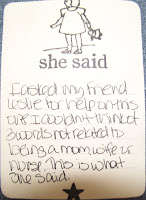 she said
I asked my friend
leslie for help on this
one I couldn't think of
3 words not related to
being a mom, wife or
nurse. This is what
she said.